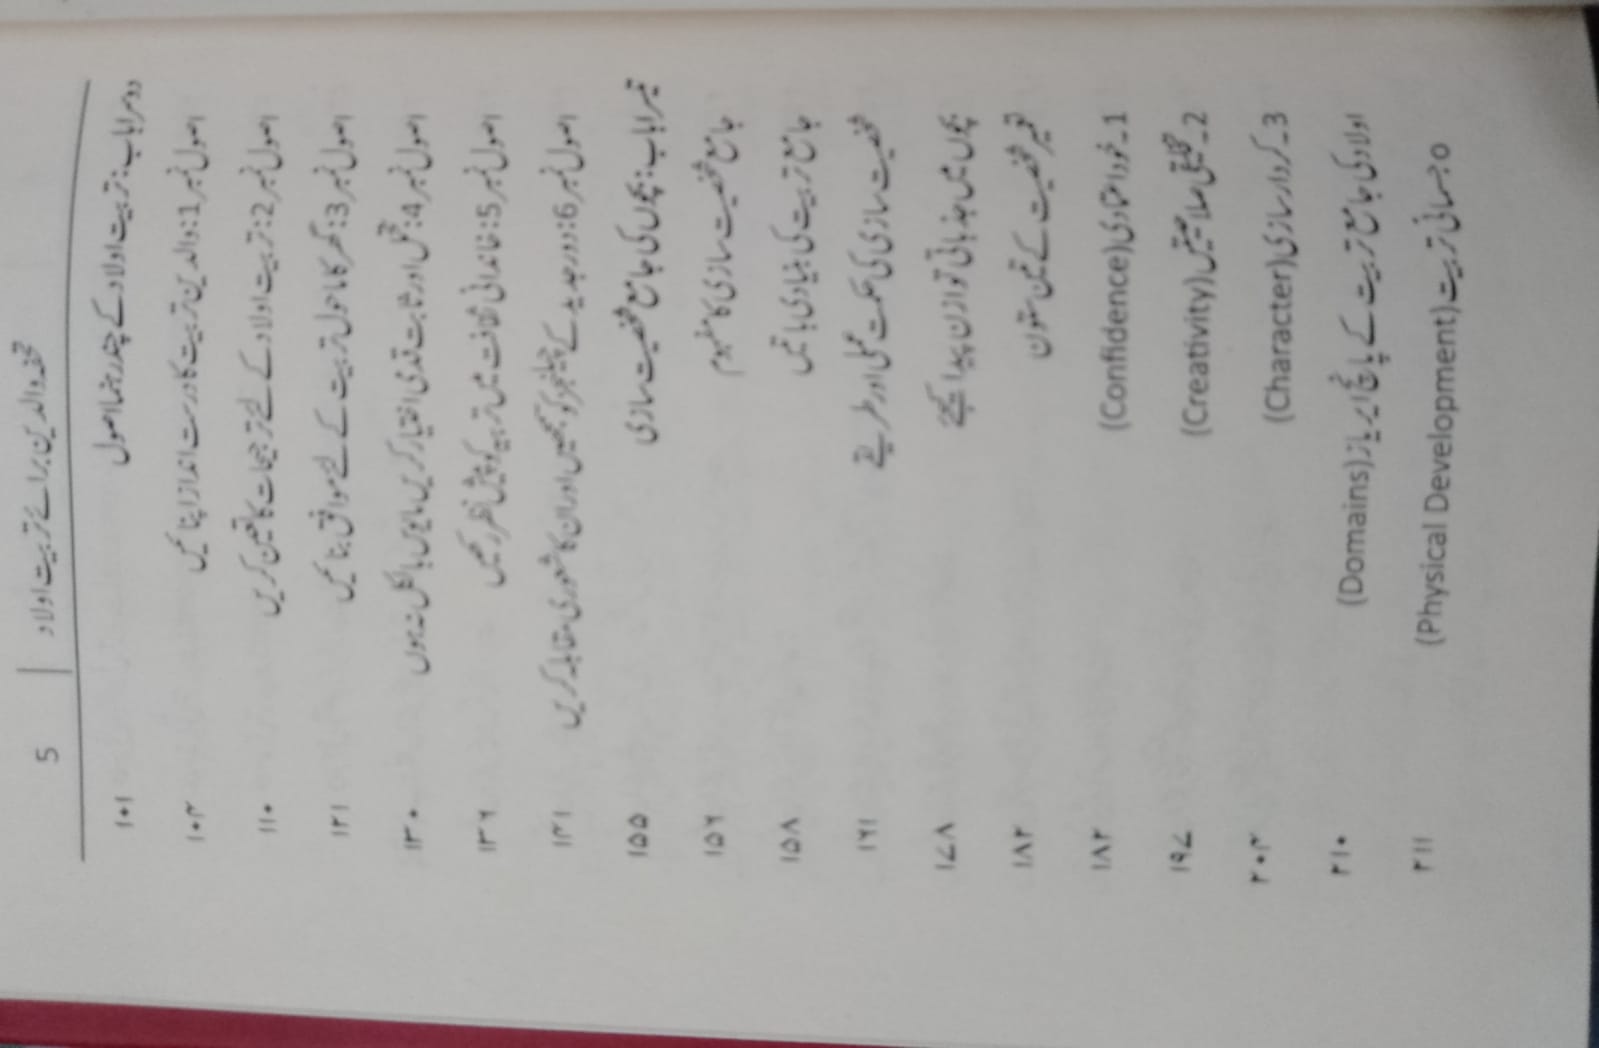 تحفہ والدین برائے تربیت اولاد | 5
دوسرا باب: تربیت اولاد کے چھ رہنما اصول ۱۰۱
اصول نمبر1: والدین تربیت کا درست انداز اپنائیں ۱۰۳
اصول نمبر2: تربیت اولاد کے لئے ترجیحات کا تعین کریں ۱۱۰
اصول نمبر3: گھر کا ماحول تربیت کے لئے موافق بنائیں ۱۲۱
اصول نمبر4: تحمل اور ثابت قدمی اختیار کریں مایوس بالکل نہ ہوں ۱۳۰
اصول نمبر5: خاندانی ثقافت میں تربیہ کو پیش نظر رکھیں ۱۳۶
اصول نمبر6: دور جدید کے چیلنجز کو سمجھیں اور ان کا شعوری مقابلہ کریں ۱۴۱
تیسرا باب: بچوں کی جامع شخصیت سازی ۱۵۵
جامع شخصیت سازی کا مفہوم ۱۵۶
جامع تربیت کی بنیادی باتیں ۱۵۸
شخصیت سازی کی حکمت عملی اور طریقے ۱۶۱
بچوں میں جذباتی توازن پیدا کیجئے ۱۷۸
تعمیر شخصیت کے تین ستون ۱۸۲
1۔ خود اعتمادی (Confidence) ۱۸۲
2۔ تخلیقی صلاحیتیں (Creativity) ۱۹۷
3۔ کردار سازی (Character) ۲۰۳
اولاد کی جامع تربیت کے پانچ ایریاز (Domains) ۲۱۰
o جسمانی تربیت (Physical Development) ۲۱۱